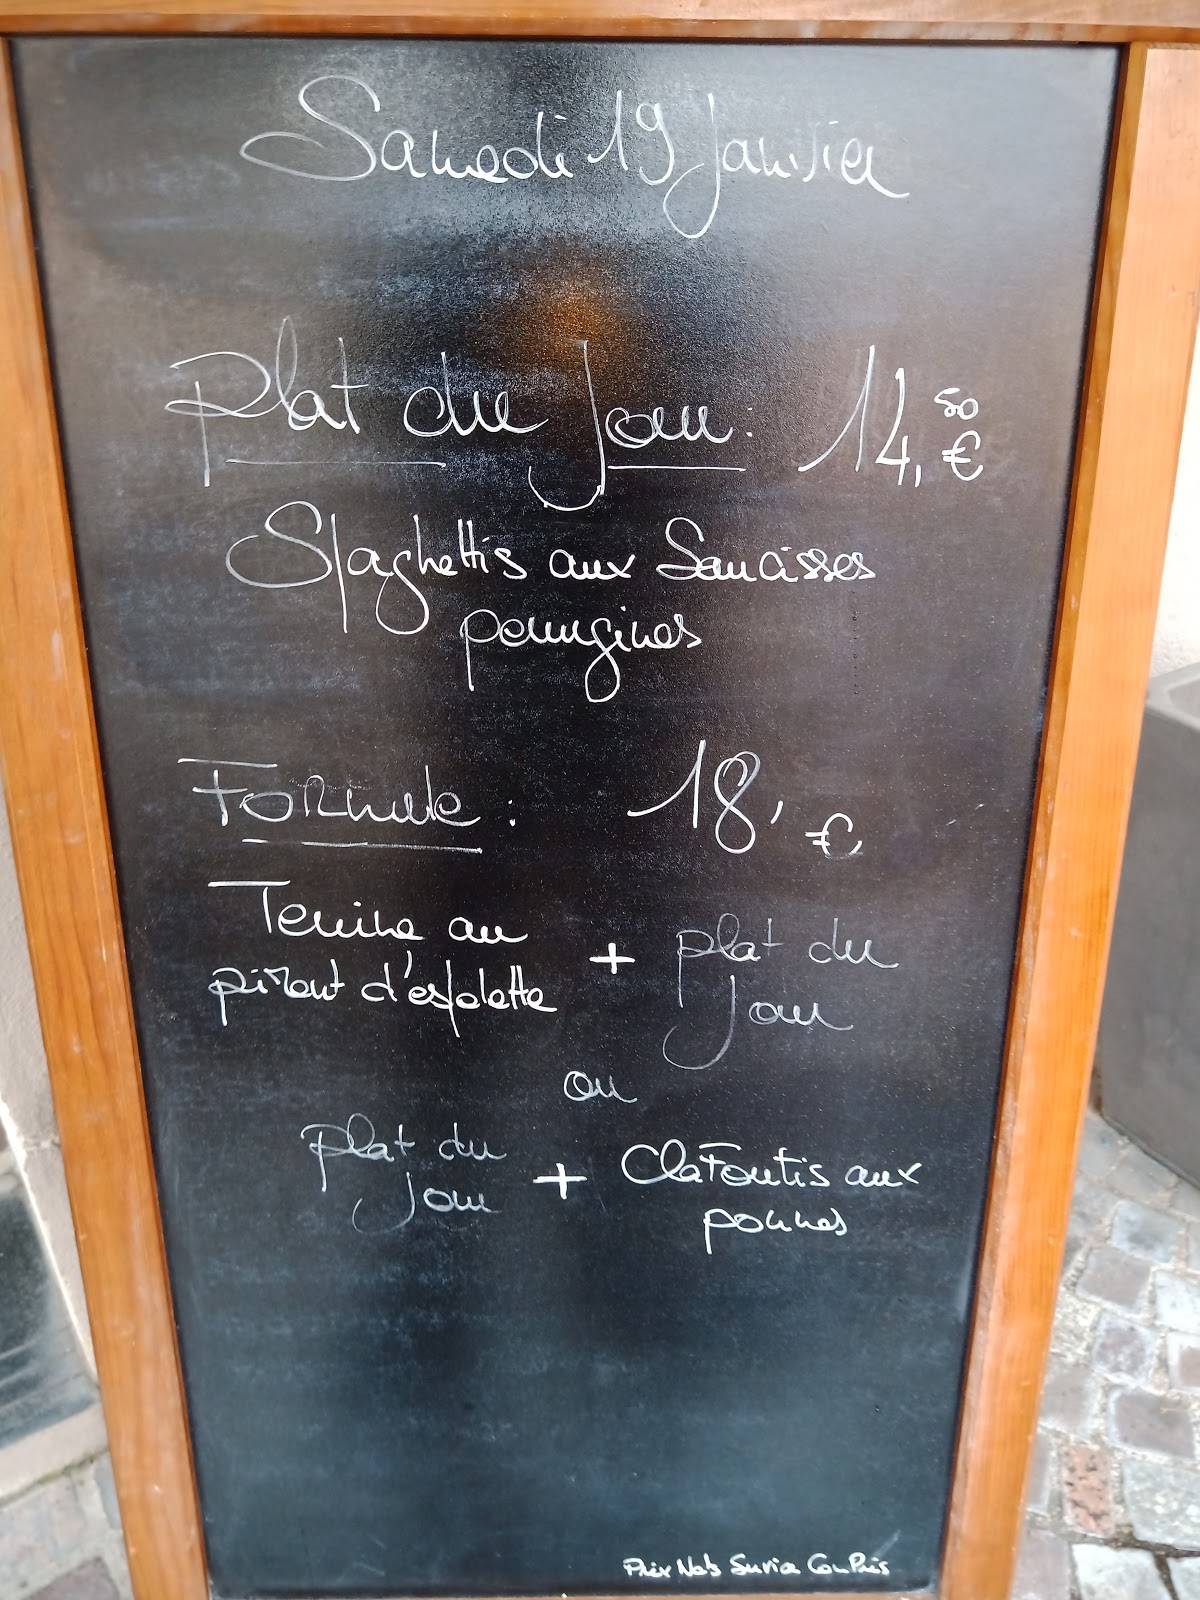 Samedi 19 Janvier
Plat du Jour : 14,50 €
Spaghettis aux Saucisses
perugines
Formule : 18,€
Terrine au
piment d'espelette + plat du
jour
ou
plat du
jour + Clafoutis aux
pommes
Prix Nets Service Compris